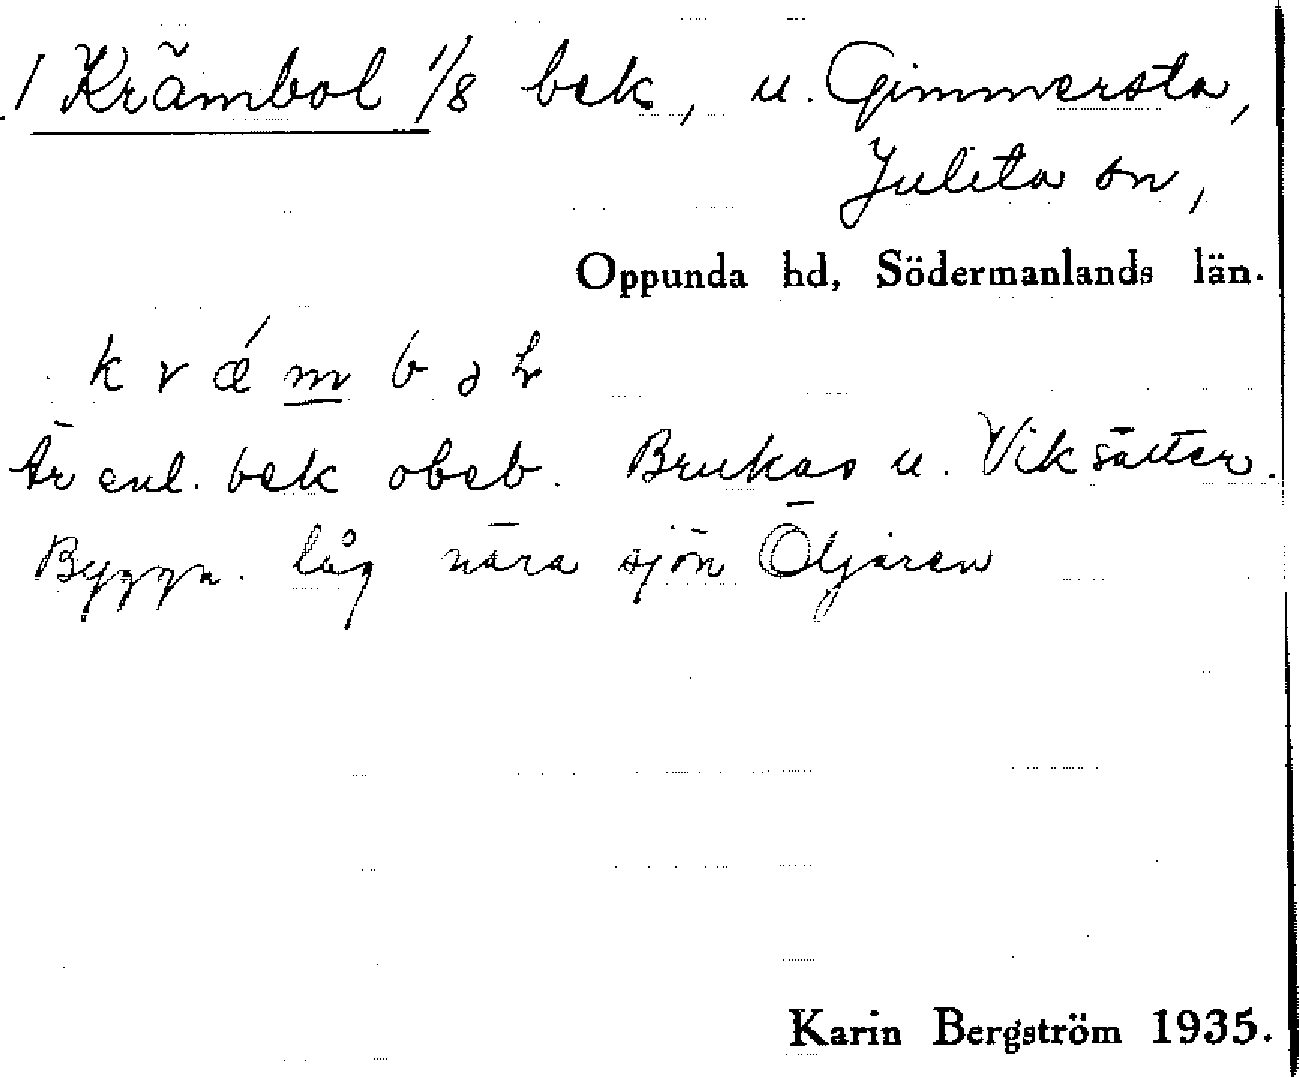 1 Krämbol 1/8 bek, u. Gimmersta,
Julita sn,
Oppunda hd, Södermanlands län.
k r ǽ m b ɔ
Är enl. bek obeb. Brukas u. Viksäter.
Byggn. låg nära sjön Öljaren
Karin Bergström 1935.